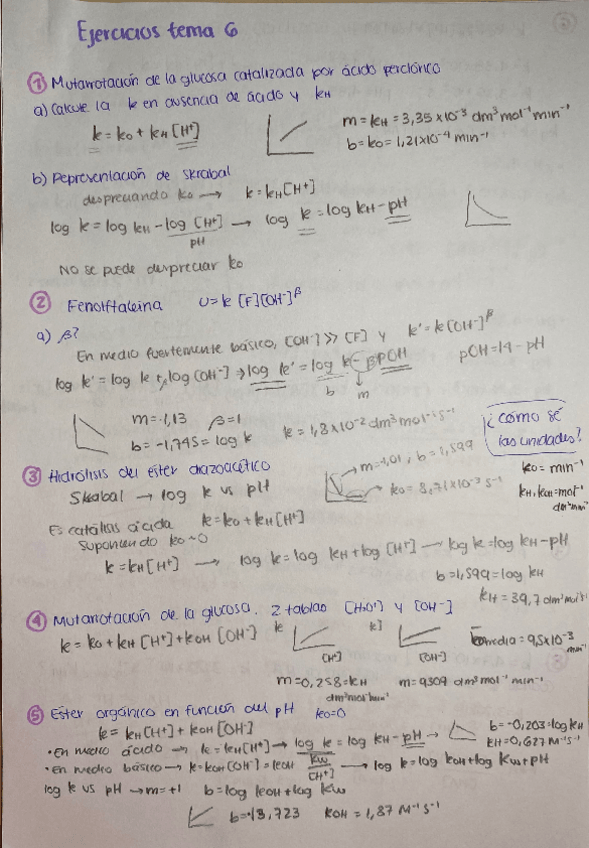 Ejercicios tema 6
① Mutarrotación de la glucosa catalizada por ácido perclórico
a) Calcule la k en ausencia de ácido y kH
k = k0 + kH [H+]
m = kH = 3,35 x10-3 dm3 mol-1 min-1
b = k0 = 1,21x10-4 min-1
b) Representación de Skrabal
despreciando k0 → k = kH [H+]
log k = log kH - log [H+] → log k = log kH - pH
pH
No se puede despreciar k0
② Fenolftaleina v = k [F][OH-]β
a) β?
En medio fuertemente básico, [OH-] >> [F] y k' = k [OH-]β
log k' = log k + log [OH-] → log k' = log k - β pOH pOH = 14 - pH
b m
m = -1,13 β = 1
b = -1,745 = log k k = 1,8 x10-2 dm3 mol-1 s-1
¿cómo sé las unidades?
k0 = min-1
kH, kOH = mol-1 dm3 min-1
③ Hidrólisis del ester diazoacético
Skrabal → log k vs pH
m = -1,01, b = 1,599
k0 = 8,71 x10-3 s-1
Es catálisis ácida k = k0 + kH [H+]
suponiendo k0 ~ 0
k = kH [H+] → log k = log kH + log [H+] → log k = log kH - pH
b = 1,599 = log kH
kH = 39,7 dm3 mol-1 s-1
④ Mutarrotación de la glucosa. 2 tablas [H3O+] y [OH-]
k = k0 + kH [H+] + kOH [OH-]
k [H+] k [OH-]
k0 media = 9,5x10-3 min-1
m = 0,258 = kH m = 9309 dm3 mol-1 min-1
dm3 mol-1 min-1
⑤ Ester orgánico en función del pH k0 = 0
k = kH [H+] + kOH [OH-]
• En medio ácido → k = kH [H+] → log k = log kH - pH → b = -0,203 = log kH
kH = 0,627 M-1 s-1
• En medio básico → k = kOH [OH-] = kOH Kw/[H+] → log k = log kOH + log Kw + pH
log k vs pH → m = +1 b = log kOH + log Kw
b = -13,723 kOH = 1,87 M-1 s-1